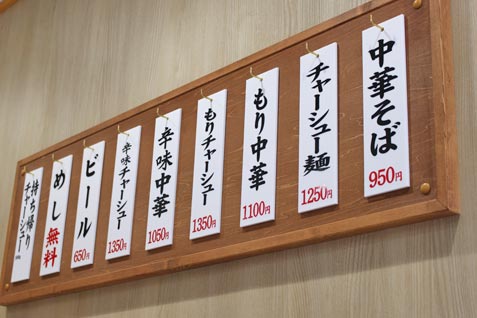 中華そば
950円
チャーシュー麺
1250円
もり中華
1100円
もりチャーシュー
1350円
辛味中華
1050円
辛味チャーシュー
1350円
ビール
650円
めし無料
持ち帰り
チャーシュー